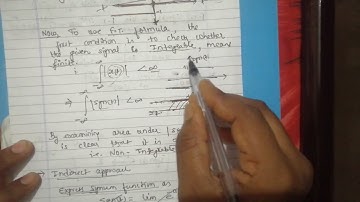 Now, To use F.T. formula, the
first condition is to check whether
the given signal is Integrable, means
finite.
i.e. ∫ |x(t)| < ∞
⇒ ∫ |sgn(t)| < ∞
By examining area under |sgn
is clear that it is
i.e. Non-Integrable
Indirect approach
Express Signum function as
sgn(t) = lim e